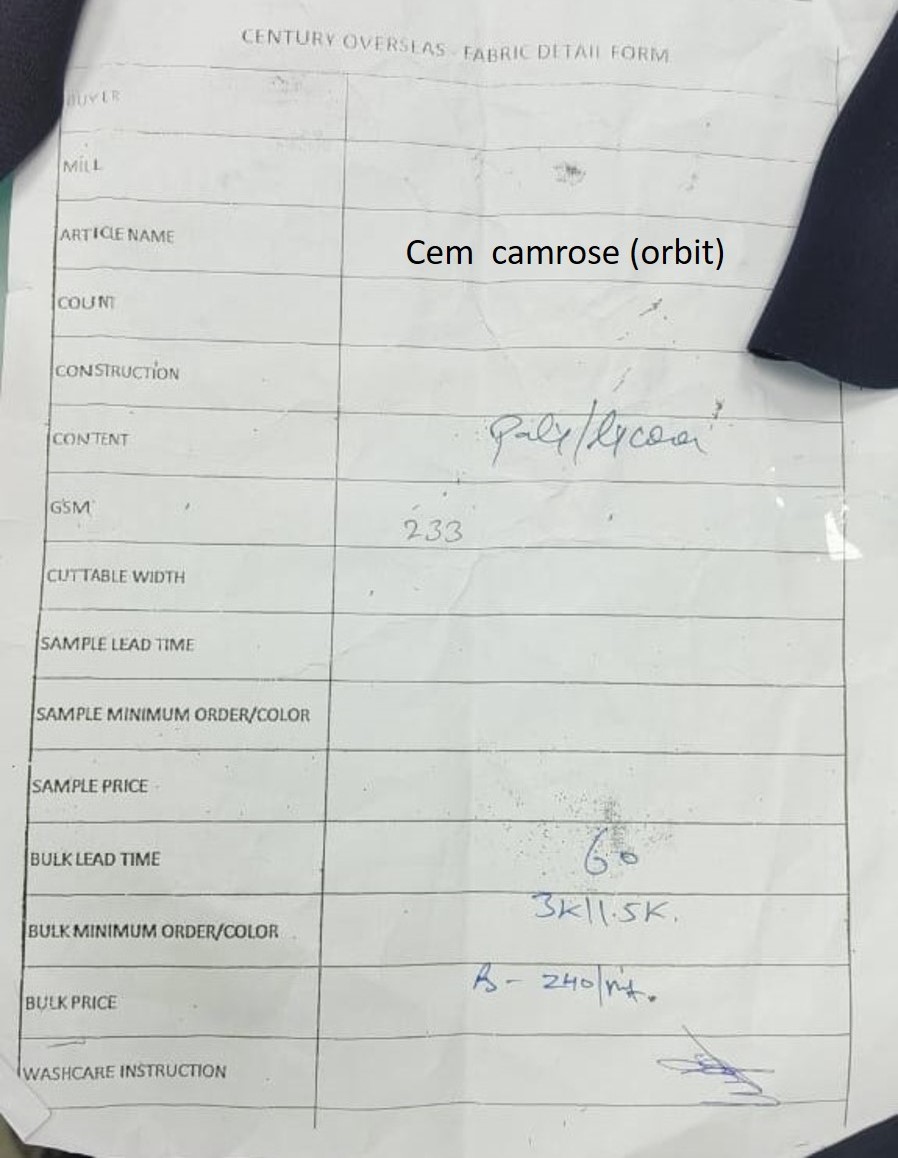 CENTURY OVERSEAS - FABRIC DETAIL FORM
BUYER
MILL
ARTICLE NAME Cem camrose (orbit)
COUNT
CONSTRUCTION
CONTENT Poly/lycra
GSM 233
CUTTABLE WIDTH
SAMPLE LEAD TIME
SAMPLE MINIMUM ORDER/COLOR
SAMPLE PRICE
BULK LEAD TIME 60
BULK MINIMUM ORDER/COLOR 3K/1.5K.
BULK PRICE 240/mt.
WASHCARE INSTRUCTION